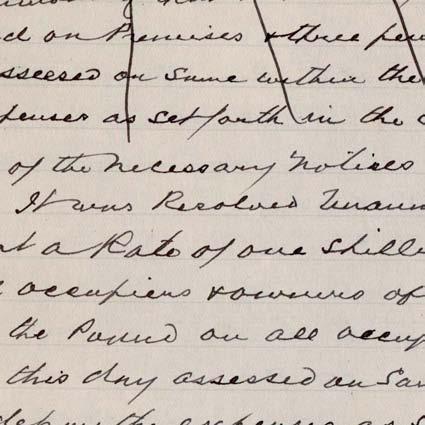 d on Premises & three pen
ssessed on Same within the
penses as set forth in the
of the necessary Notices
It was Resolved Unanim
t a Rate of one Shilli
occupiers & owners of
the Pound on all occup
this day assessed on Sa
the expenses as S